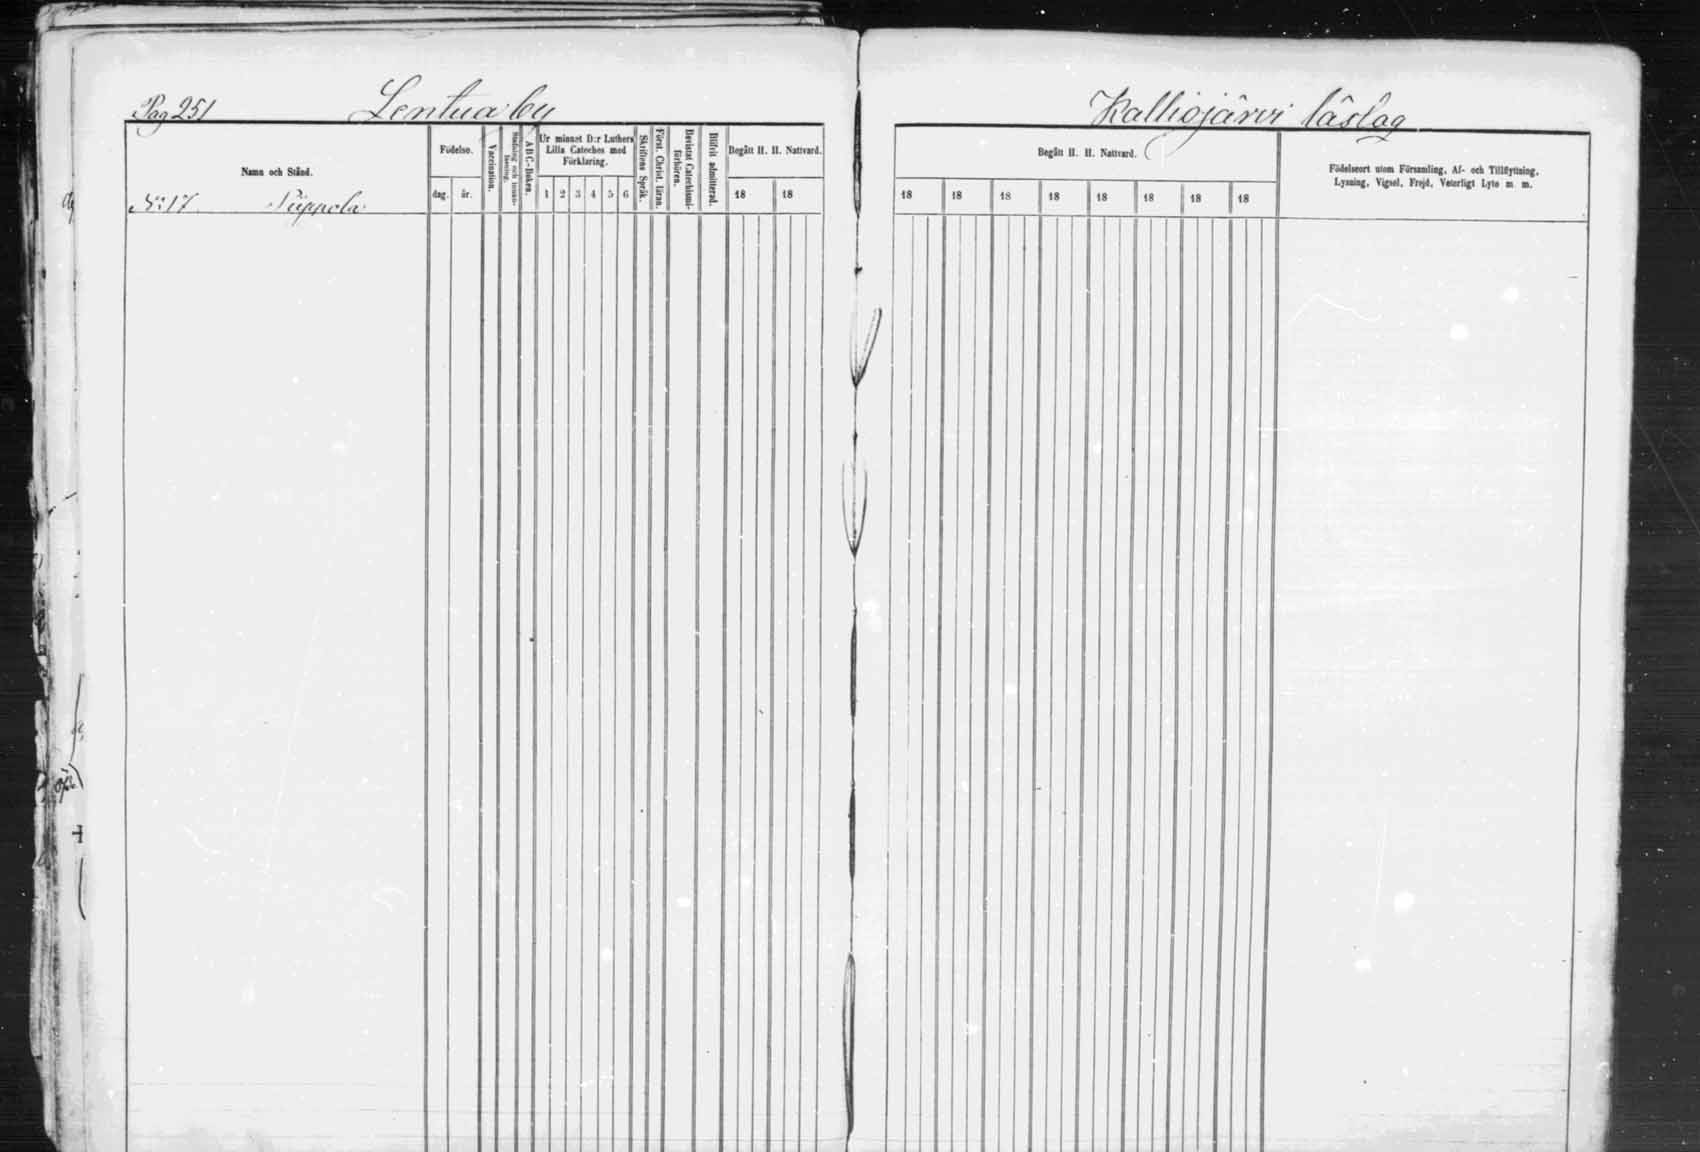 Pag 251 Lentua by
Namn och Stånd.
Födelse.
dag. år.
Vaccination.
Stafning och innan-
läsning.
ABC-Boken.
Ur minnet D:r Luthers
Lilla Cateches med
Förklaring.
1 2 3 4 5 6
Skriftens Språk.
Först. Christ. läran.
Bevistat Catechismi-
förhören.
Blifvit admitterad.
Begått H. H. Nattvard.
18 18
N:o 17 Piippola
Kalliojärvi läslag
Begått H. H. Nattvard.
18 18 18 18 18 18 18 18
Födelseort utom Församling, Af- och Tillflyttning,
Lysning, Vigsel, Frejd, Veterligt Lyte m. m.